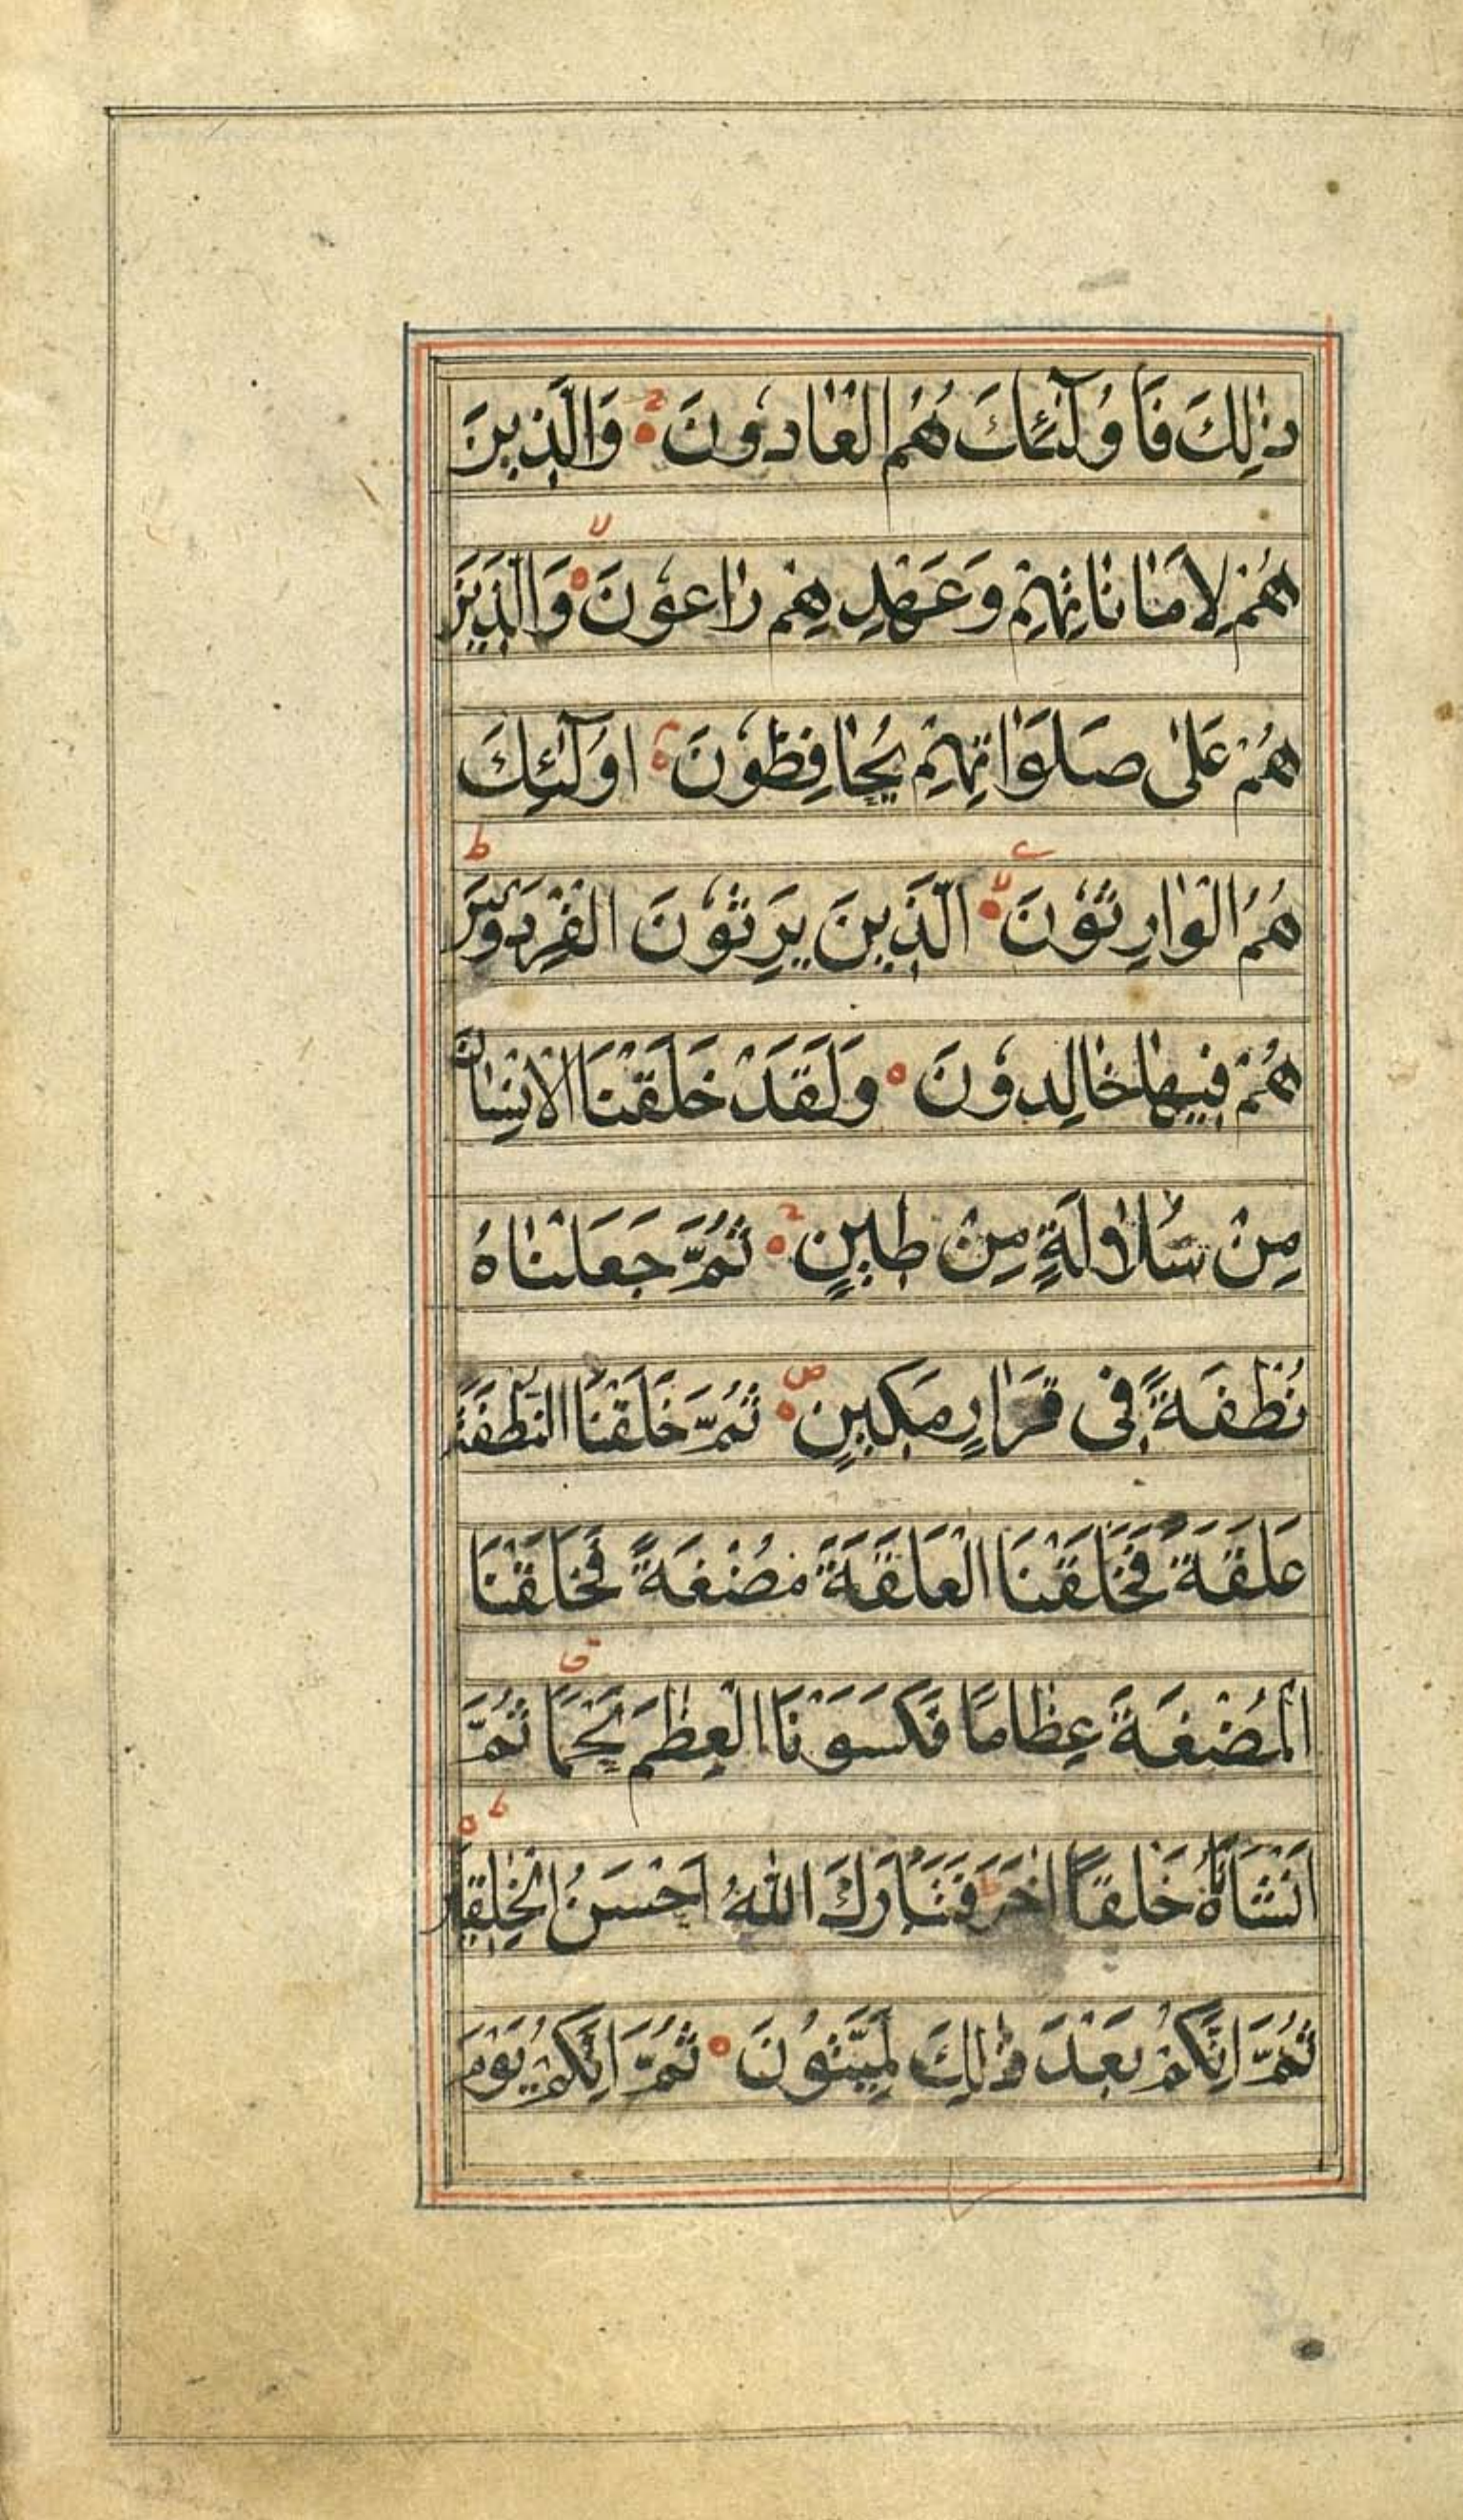 ذٰلِكَ فَاُولٰٓئِكَ هُمُ الْعَادُونَ وَالَّذِينَ
هُمْ لِاَمَانَاتِهِمْ وَعَهْدِهِمْ رَاعُونَ وَالَّذِينَ
هُمْ عَلٰى صَلَوَاتِهِمْ يُحَافِظُونَ اُولٰٓئِكَ
هُمُ الْوَارِثُونَ الَّذِينَ يَرِثُونَ الْفِرْدَوْسَ
هُمْ فِيهَا خَالِدُونَ وَلَقَدْ خَلَقْنَا الْاِنْسَانَ
مِنْ سُلَالَةٍ مِنْ طِينٍ ثُمَّ جَعَلْنَاهُ
نُطْفَةً فِى قَرَارٍ مَكِينٍ ثُمَّ خَلَقْنَا النُّطْفَةَ
عَلَقَةً فَخَلَقْنَا الْعَلَقَةَ مُضْغَةً فَخَلَقْنَا
الْمُضْغَةَ عِظَامًا فَكَسَوْنَا الْعِظٰمَ لَحْمًا ثُمَّ
اَنْشَاْنَاهُ خَلْقًا اٰخَرَ فَتَبَارَكَ اللّٰهُ اَحْسَنُ الْخٰلِقِينَ
ثُمَّ اِنَّكُمْ بَعْدَ ذٰلِكَ لَمَيِّتُونَ ثُمَّ اِنَّكُمْ يَوْمَ